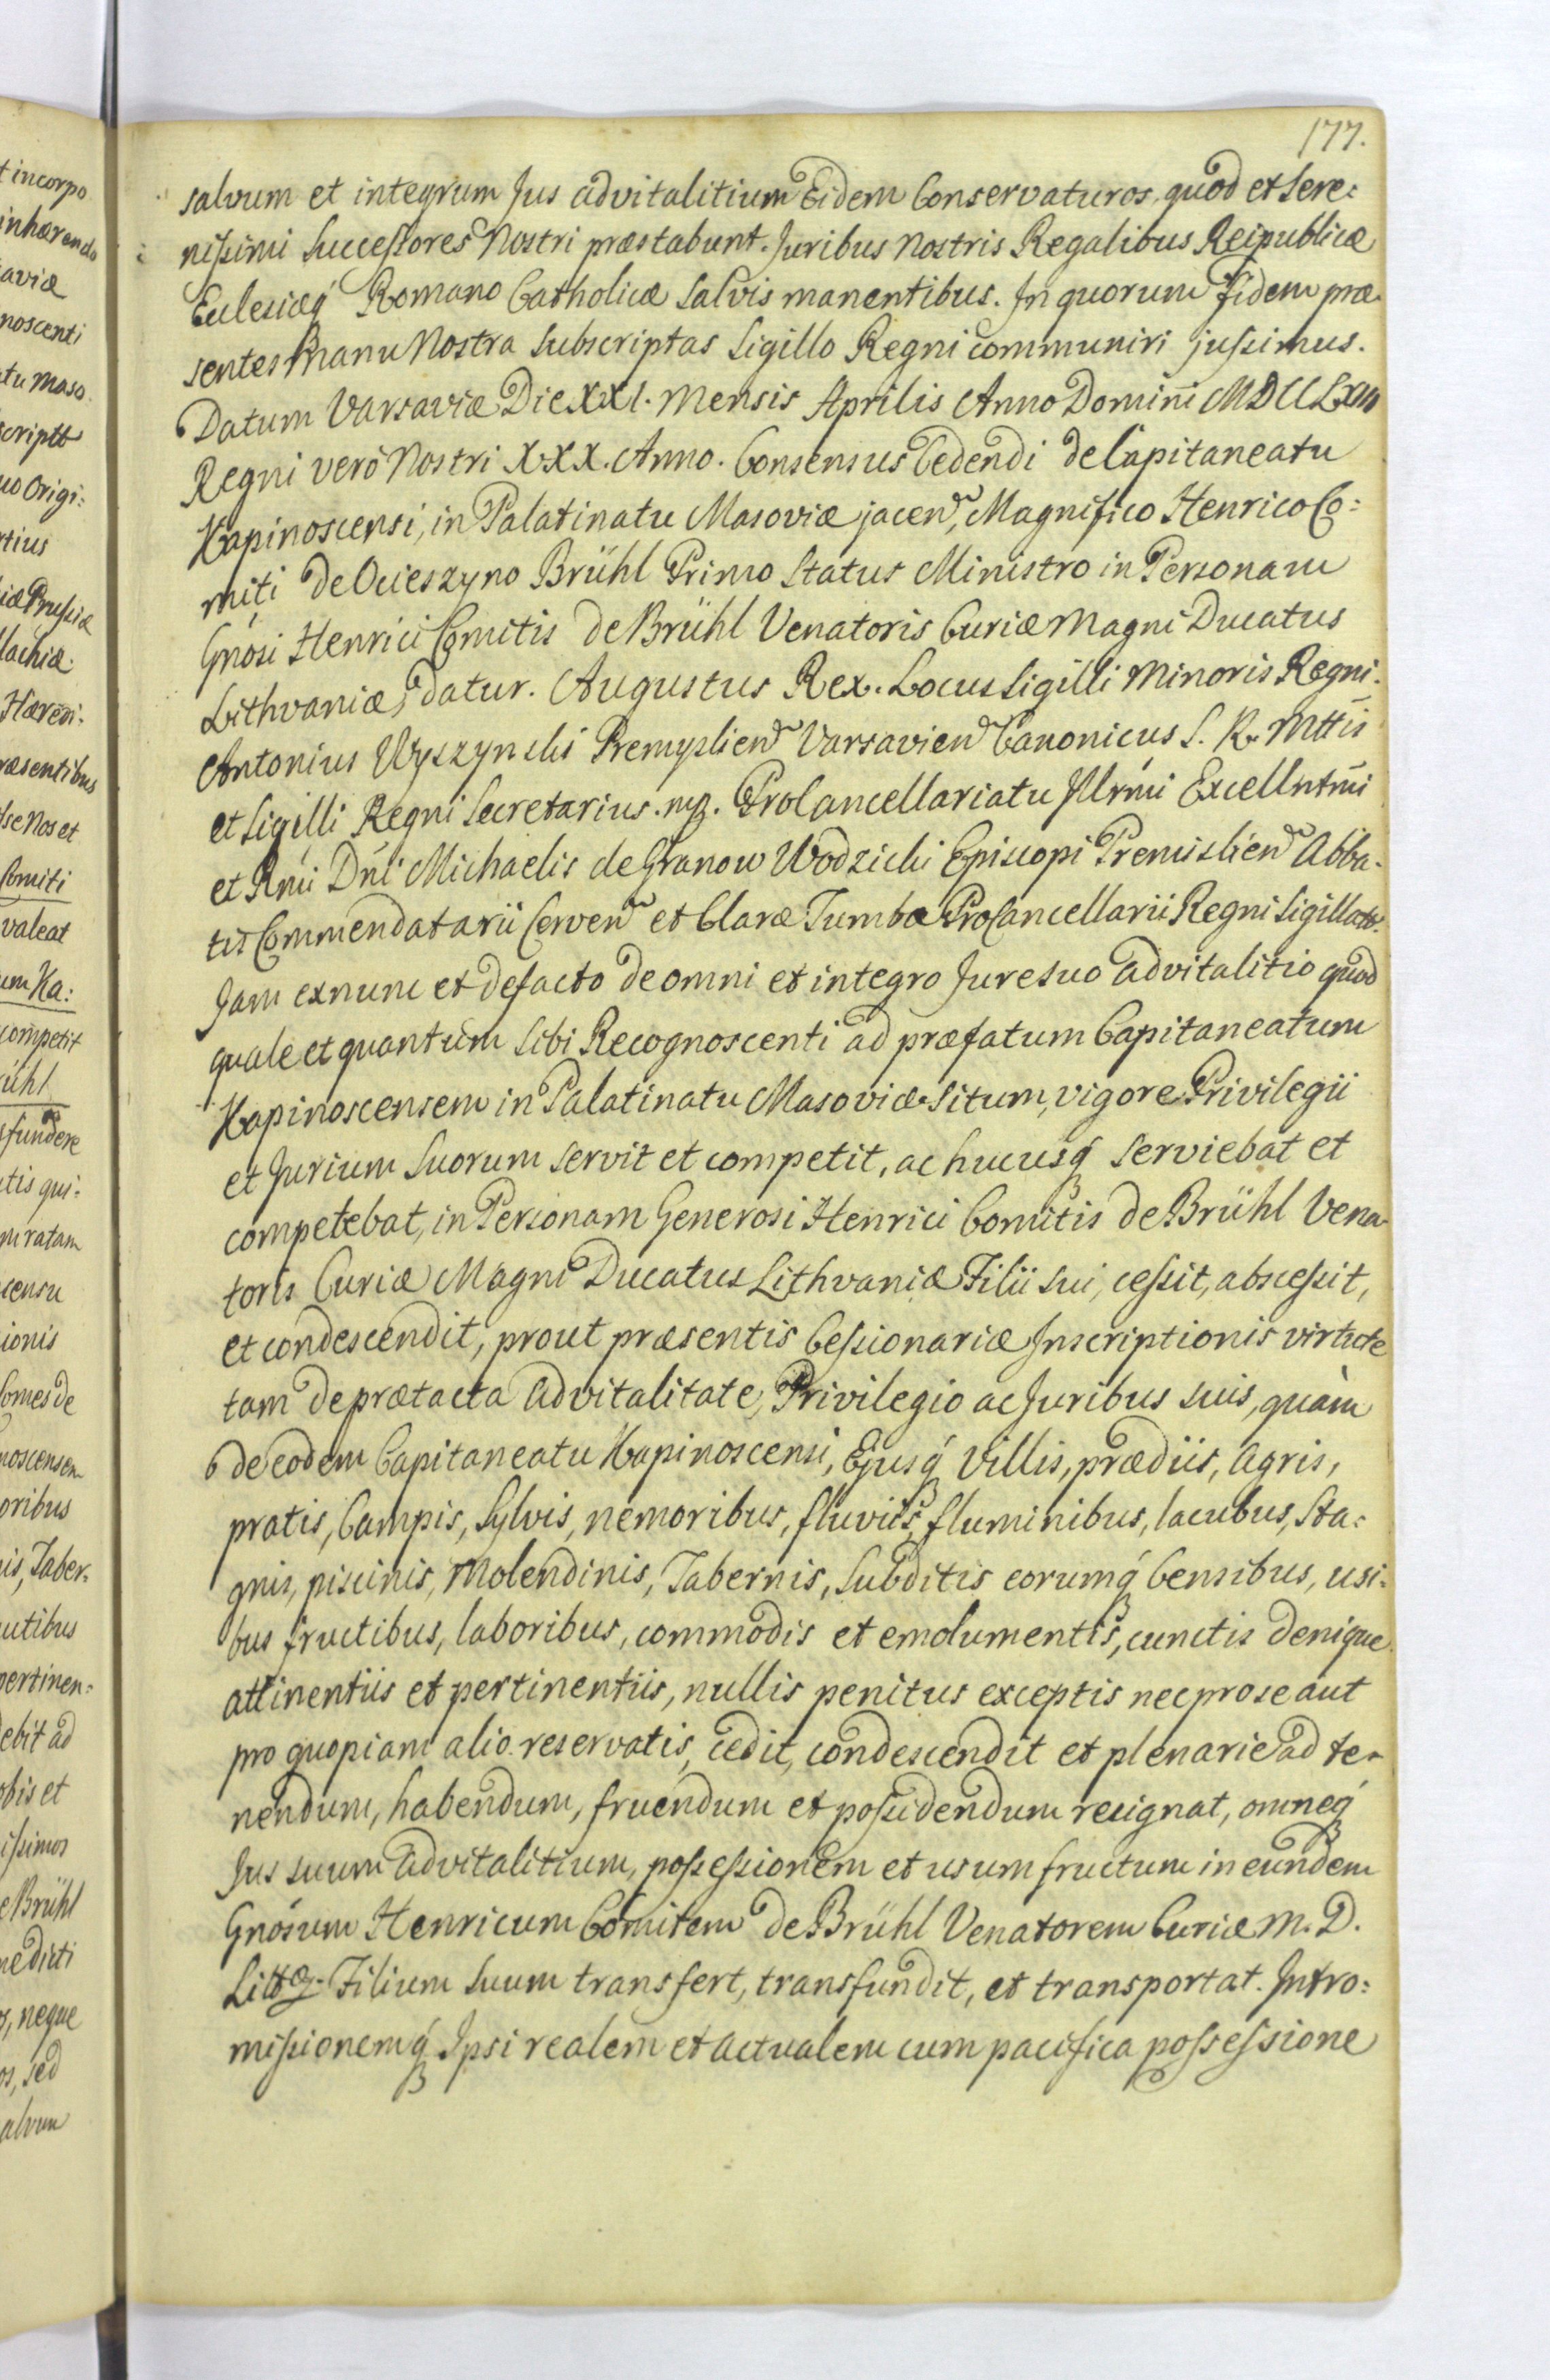 177.
salvum et integrum Jus advitalitium Eidem Conservaturos, quod et Sere:
nissimi Successores Nostri præstabunt. Juribus Nostris Regalibus Reipublicæ
Eulesiæq́ Romano Catholicæ Salvis manentibus. In quorum fidem præ
sentes Manu Nostra Subscriptas Sigillo Regni communiri jussimus.
Datum Varsaviæ Die XXI. Mensis Aprilis Anno Domini MDCCLXIII
Regni verò Nostri XXX. Anno. Consensus Cedendi de Capitaneatu
Kapinoscensi, in Palatinatu Masoviæ jacen, Magnifico Henrico Co:
miti de Ocieszyno Brühl Primo Status Ministro in Personam
Gnósi Henrici Comitis de Brühl Venatoris Curiæ Magni Ducatus
Lithvaniæ, datur. Augustus Rex. Locus Sigilli Minoris Regni.
Antonius Wyszynski Premyslien Varsavien Canonicus S. R. Mttis
et Sigilli Regni Secretarius. mp. ProCancellariatu Illrmi Excellntmi
et Rmi Dni Michaelis de Granow Wodzicki Episcopi Premislien Abba-
tis Commendatarii Cerven et Claræ Tumbæ ProCancellarii Regni Sigillat.
Jam exnunc et defacto de omni et integro Jure suo advitalitio quod
quale et quantum Sibi Recognoscenti ad præfatum Capitaneatum
Kapinoscensem in Palatinatu Masoviæ Situm, vigore Privilegii
et Jurium Suorum servit et competit, ac hucusq́ serviebat et
competebat, in Personam Generosi Henrici Comitis de Brühl Vena-
toris Curiæ Magni Ducatus Lithvaniæ Filii sui, cessit, abscessit,
et condescendit, prout præsentis Cessionariæ Inscriptionis virtute
tam de prætacta advitalitate, Privilegio ac Juribus suis, quàm
de eodem Capitaneatu Kapinoscensi, Ejusq́ Villis, prædiis, agris,
pratis, Campis, Sylvis, nemoribus, fluviis, fluminibus, lacubus, Sta:
gnis, piscinis, Molendinis, Tabernis, Subditis eorumq́ Censibus, usi:
bus fructibus, laboribus, commodis et emolumentis, cunctis denique
attinentiis et pertinentiis, nullis penitus exceptis nec pro se aut
pro quopiam alio reservatis, cedit, condescendit et plenarie ad te-
nendum, habendum, fruendum et possidendum resignat, omneq́
Jus suum advitalitium, possessionem et usumfructum in eundem
Gnósum Henricum Comitem de Brühl Venatorem Curiæ M. D.
Litt. Filium Suum transfert, transfundit, et transportat. Intro:
missionemq́ Ipsi realem et actualem cum pacifica possessione